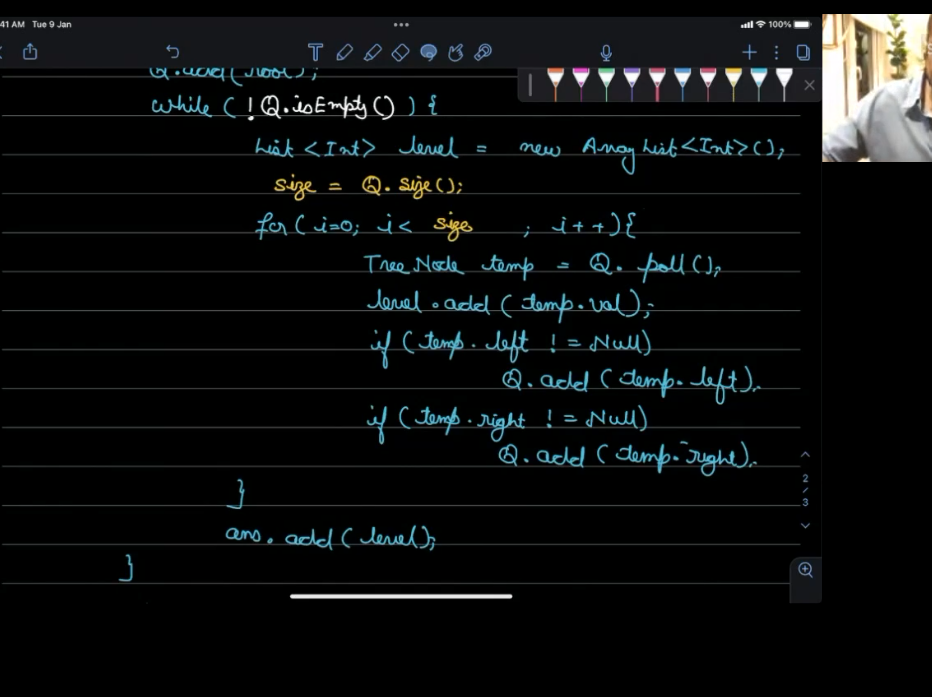 41 AM Tue 9 Jan
100%
Q.add(root);
while ( ! Q.isEmpty() ) {
List <Int> level = new ArrayList<Int>();
size = Q.size();
for( i=0; i< size ; i++){
TreeNode temp = Q.poll();
level.add(temp.val);
if (temp.left != Null)
Q.add(temp.left).
if (temp.right != Null)
Q.add(temp.right).
}
ans.add(level);
}
2
/
3